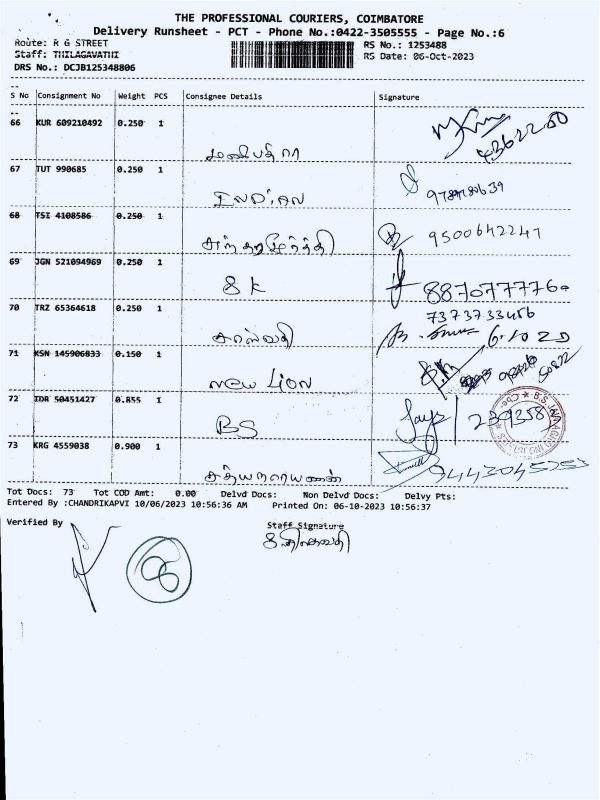 THE PROFESSIONAL COURIERS, COIMBATORE
Delivery Runsheet - PCT - Phone No.:0422-3505555 - Page No.:6
Route: R G STREET
RS No.: 1253488
Staff: THILAGAVATHI
RS Date: 06-Oct-2023
DRS No.: DCJB125348806
--
S No Consignment No Weight PCS Consignee Details Signature
--
66 KUR 609210492 0.250 1
67 TUT 990685 0.250 1
68 TSI 4108586 0.250 1
9500642247
69 JGN 521094969 0.250 1
SK
70 TRZ 65364618 0.250 1
7373733456
சரஸ்வதி
71 KSN 145906833 0.150 1
New Lion
72 IDR 50451427 0.855 1
BS
73 KRG 4559038 0.900 1
சத்யநாராயணன்
Tot Docs: 73 Tot COD Amt: 0.00 Delvd Docs: Non Delvd Docs: Delvy Pts:
Entered By :CHANDRIKAPVI 10/06/2023 10:56:36 AM Printed On: 06-10-2023 10:56:37
Verified By
Staff Signature